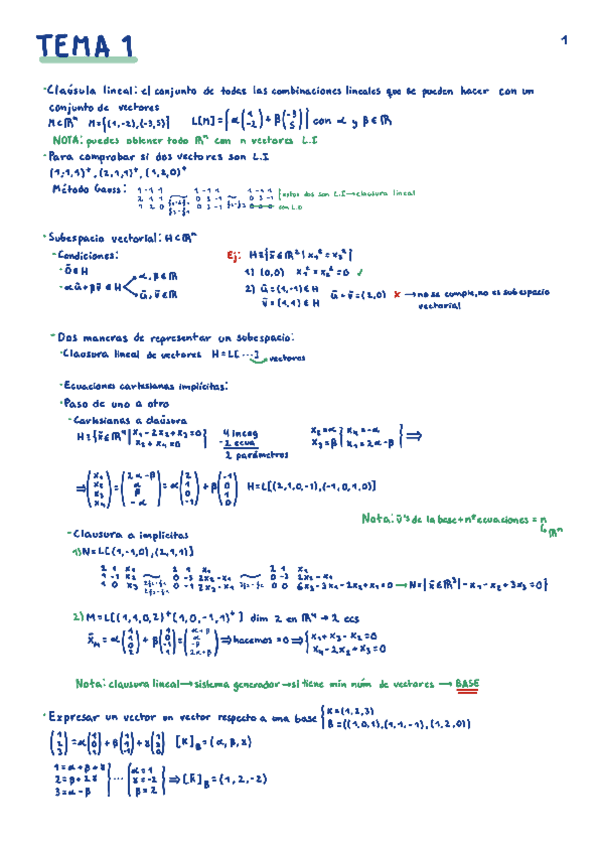 TEMA 1
1
· Claúsula lineal: el conjunto de todas las combinaciones lineales que se pueden hacer con un
conjunto de vectores
M∈ℝⁿ M={(1,-2),(-3,5)} L[M]={α(1 -2)+β(-3 5)} con α y β∈ℝ
NOTA: puedes obtener todo ℝⁿ con n vectores L.I
- Para comprobar si dos vectores son L.I
(1,-1,1)⁺, (2,1,1)⁺, (1,2,0)⁺
Método Gauss:
estos dos son L.I → clausura lineal
son L.D
· Subespacio vectorial: H⊂ℝⁿ
- Condiciones:
- 0̄∈H
- αū+βv̄∈H
α,β∈ℝ
ū,v̄∈ℝ
Ej: H={x̄∈ℝ²| x₁²=x₂²}
1) (0,0) x₁²=x₂²=0 ✓
2) ū=(1,-1)∈H
v̄=(1,1)∈H
ū+v̄=(2,0) × → no se cumple, no es subespacio
vectorial
- Dos maneras de representar un subespacio:
· Clausura lineal de vectores H=L[...] vectores
· Ecuaciones cartesianas implícitas:
· Paso de uno a otro
- Cartesianas a claúsura
H={x̄∈ℝ⁴| x₁-2x₂+x₃=0 x₂+x₄=0}
4 incog
-2 ecua
2 parámetros
x₂=α x₃=β } x₄=-α x₁=2α-β } ⇒
⇒ (x₁ x₂ x₃ x₄)=(2α-β α β -α)=α(2 1 0 -1)+β(-1 0 1 0) H=L[(2,1,0,-1),(-1,0,1,0)]
Nota: v̄'s de la base + nº ecuaciones = n
↳ ℝⁿ
- Clausura a implícitas
1) N=L[(1,-1,0),(2,1,1)]
2) M=L[(1,1,0,2)⁺(1,0,-1,1)⁺] dim 2 en ℝ⁴ → 2 ecs
⇒ hacemos =0 ⇒ { x₁+x₃-x₂=0
x₄-2x₂+x₃=0
Nota: clausura lineal → sistema generador → si tiene mín núm de vectores → BASE
· Expresar un vector un vector respecto a una base { x̄=(1,2,3)
B={(1,0,1),(1,1,-1),(1,2,0)}
(1 2 3)=α(1 0 1)+β(1 1 -1)+γ(1 2 0) [x̄]B=(α,β,γ)
1=α+β+γ
2=β+2γ
3=α-β
} ... { α=1 γ=-2 β=2 } ⇒ [x̄]B=(1,2,-2)